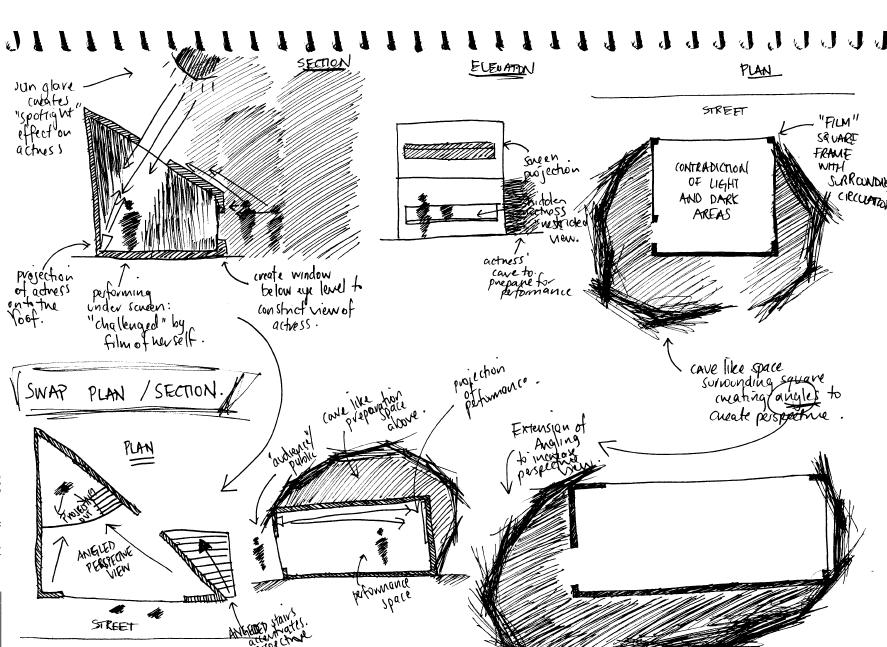 SECTION
ELEVATION
PLAN
sun glare
creates
"spotlight"
effect on
actress
projection
of actress
onto the
roof.
performing
under screen:
"challenged" by
film of herself.
create window
below eye level to
constrict view of
actress.
screen
projection
hidden
actress
restricted
view.
actress'
cave to
prepare for
performance
STREET
CONTRADICTION
OF LIGHT
AND DARK
AREAS
"FILM"
SQUARE
FRAME
WITH
SURROUNDING
CIRCULATION
cave like space
surrounding square
creating angles to
create perspective.
SWAP PLAN / SECTION.
PLAN
projection
out
ANGLED
PERSPECTIVE
VIEW
STREET
ANGLED stairs
accentuates
"audience"/
public
cave like
preparation
space
above.
projection
of
performance.
performance
space
Extension of
Angling
to increase
perspective
view.